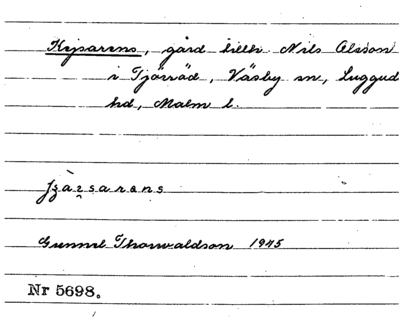 Kejsarens, gård tillh. Nils Olsson
i Tjörröd, Väsby sn, Luggud
hd, Malm l.
Gunnel Thorwaldson 1945
Nr 5698.